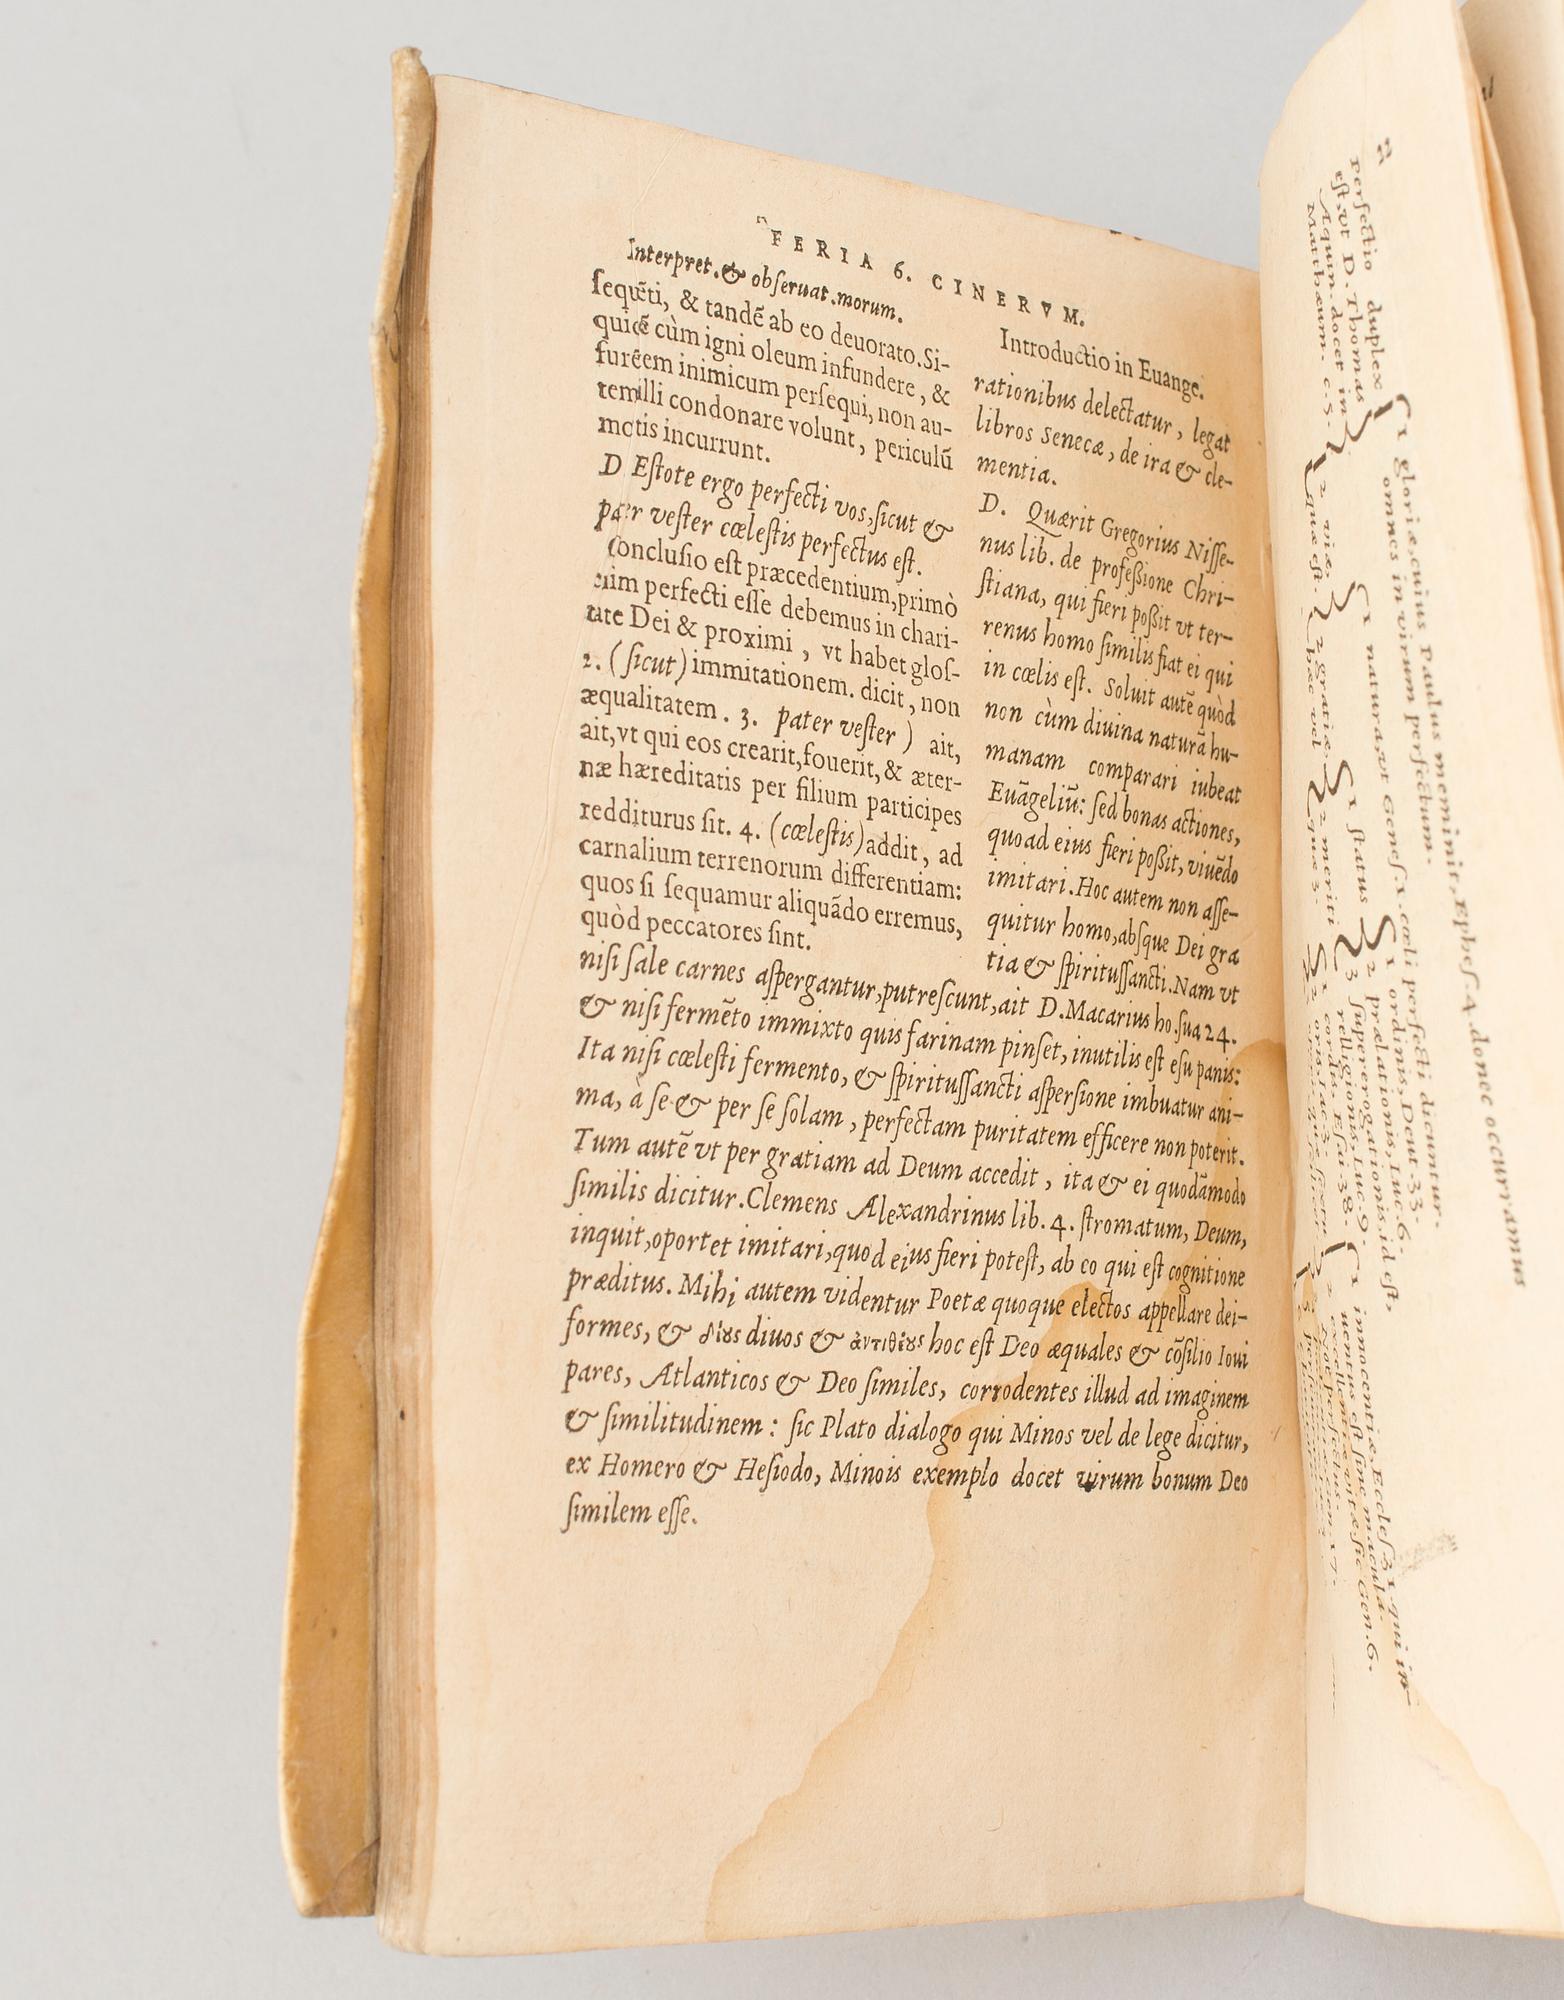 FERIA 6. CINERVM.
Interpret. & obseruat. morum.
sequēti, & tandē ab eo deuorato. Si-
quidē cùm igni oleum infundere, &
furētem inimicum persequi, non au-
tem illi condonare volunt, periculū
mortis incurrunt.
D Estote ergo perfecti vos, sicut &
pater vester cœlestis perfectus est.
Conclusio est præcedentium, primò
enim perfecti esse debemus in chari-
tate Dei & proximi, vt habet glos-
2. (sicut) immitationem. dicit, non
æqualitatem. 3. pater vester) ait,
ait, vt qui eos crearit, fouerit, & æter-
næ hæreditatis per filium participes
redditurus sit. 4. (cœlestis) addit, ad
carnalium terrenorum differentiam:
quos si sequamur aliquādo erremus,
quòd peccatores sint.
Introductio in Euange.
rationibus delectatur, legat
libros Senecæ, de ira & cle-
mentia.
D. Quærit Gregorius Nisse-
nus lib. de professione Chri-
stiana, qui fieri possit vt ter-
renus homo similis fiat ei qui
in cœlis est. Soluit autē quòd
non cùm diuina naturā hu-
manam comparari iubeat
Euāgeliū: sed bonas actiones,
quoad eius fieri possit, viuēdo
imitari. Hoc autem non asse-
quitur homo, absque Dei gra
tia & spiritussancti. Nam vt
nisi sale carnes aspergantur, putrescunt, ait D. Macarius ho. sua 24.
& nisi fermēto immixto quis farinam pinset, inutilis est esu panis:
Ita nisi cœlesti fermento, & spiritussancti aspersione imbuatur ani-
ma, à se & per se solam, perfectam puritatem efficere non poterit.
Tum autē vt per gratiam ad Deum accedit, ita & ei quodāmodo
similis dicitur. Clemens Alexandrinus lib. 4. stromatum, Deum,
inquit, oportet imitari, quod eius fieri potest, ab eo qui est cognitione
præditus. Mihi autem videntur Poetæ quoque electos appellare dei-
formes, & δίȣς diuos & ἀντιθέȣς hoc est Deo æquales & cōsilio Ioui
pares, Atlanticos & Deo similes, corrodentes illud ad imaginem
& similitudinem: sic Plato dialogo qui Minos vel de lege dicitur,
ex Homero & Hesiodo, Minois exemplo docet virum bonum Deo
similem esse.
Perfectio duplex
est, vt D. Thomas
Aquin. docet in
Matthæum. c. 5.
1 gloriæ, cuius Paulus meminit, Ephes. 4. donec occurramus
omnes in virum perfectum.
2 viæ,
quæ est.
1 naturæ, vt Genes. 1. cœli perfecti dicuntur.
2 gratiæ
hæc vel
1 status
2 meriti
quæ 3.
1 ordinis, Deut. 33.
2 prælationis, Luc. 6.
3 supererogationis, id est,
religionis, Luc. 9.
1 cordis, Esai. 38.
2 oris, Iac. 3.
1 innocentiæ, Eccles. 31. qui in-
uentus est sine macula.
2 excellentiæ vitæ sic Gen. 6.